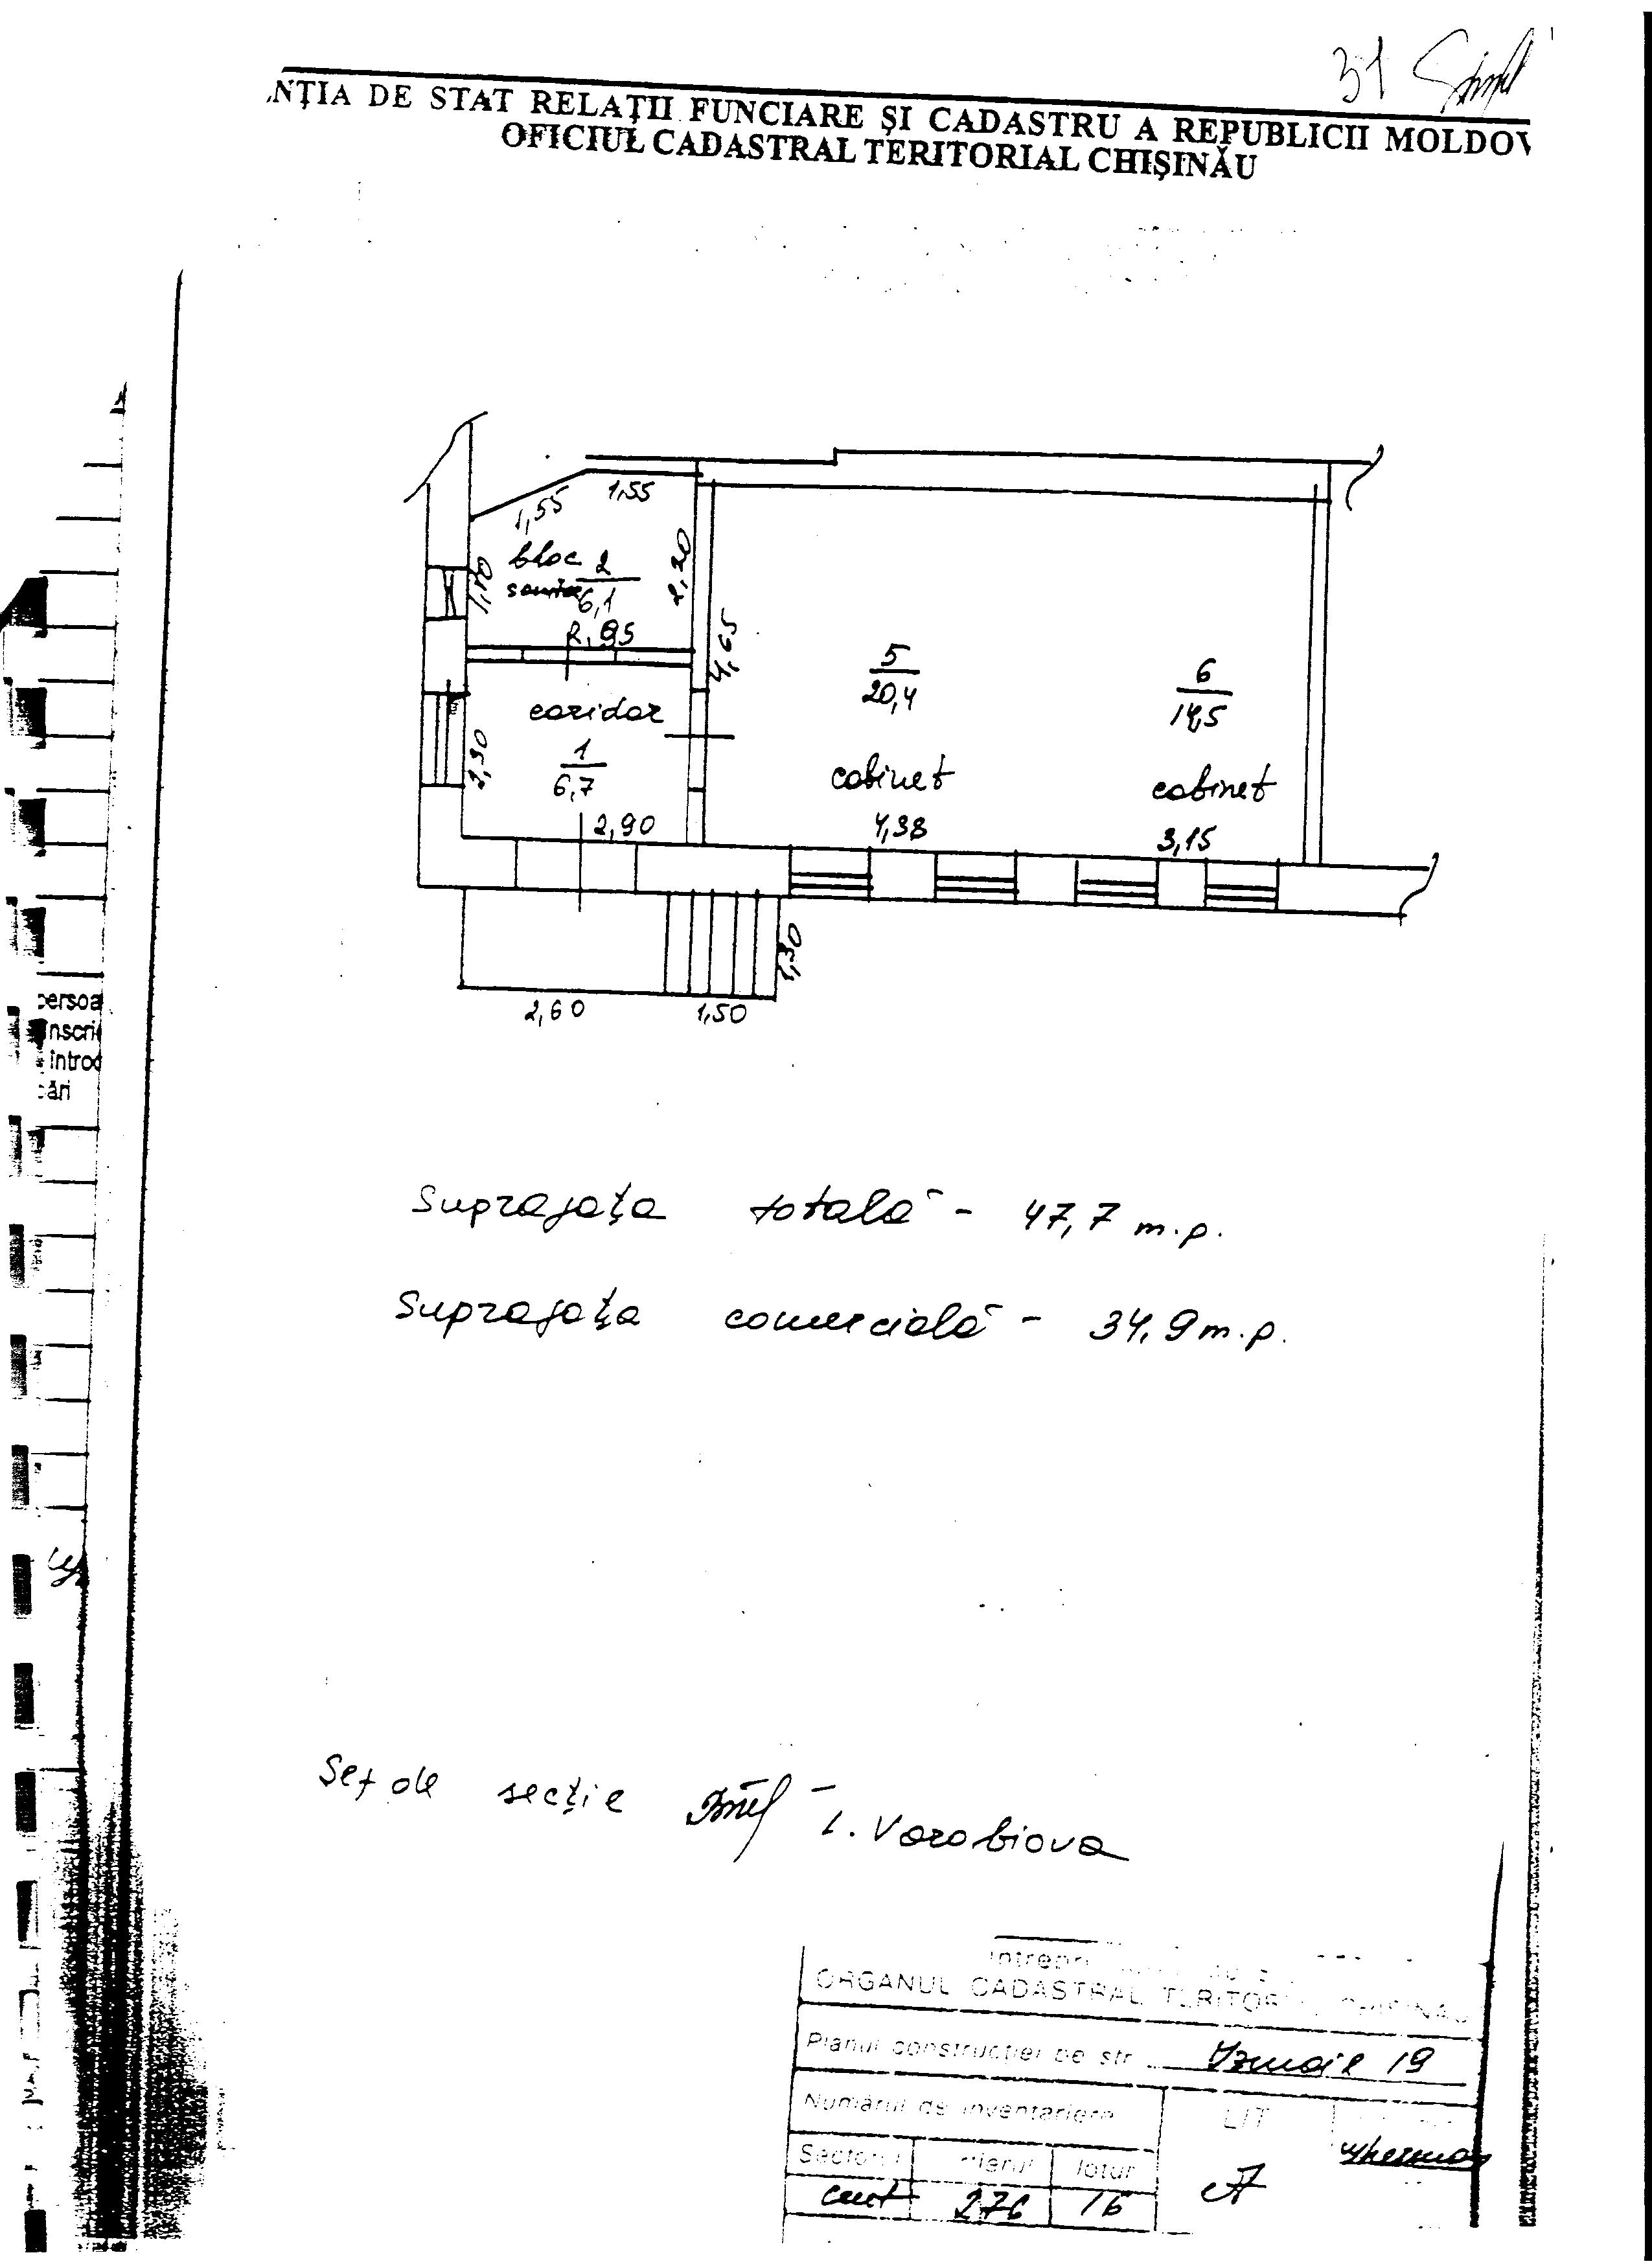 31
NȚIA DE STAT RELAȚII FUNCIARE ȘI CADASTRU A REPUBLICII MOLDOV
OFICIUL CADASTRAL TERITORIAL CHIȘINĂU
1,55 1,55
bloc 2
6,1
2,20
2,95
4,65
coridor
1
6,7
2,30
2,90
5
20,4
cabinet
4,38
6
14,5
cabinet
3,15
1,30
2,60 1,50
persoa
înscri
introd
ări
Suprafața totală - 47,7 m.p.
Suprafața comercială - 34,9 m.p.
Șef de secție I. Vorobiova
ORGANUL CADASTRAL TERITORIAL CHIȘINĂU
Planul construcției pe str Izmail 19
Numărul de inventariere LIT
Sectorul lotul
cent 276 16 A